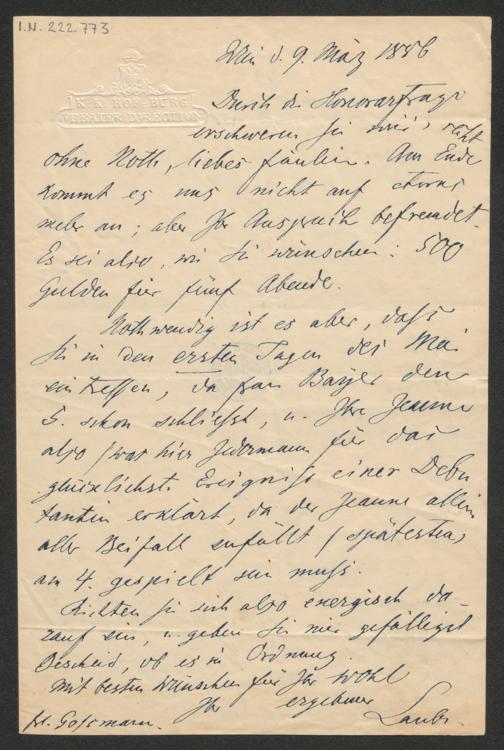 I.N. 222.773
K.K. HOF-BURG
THEATER DIRECTION
Wien d. 9. März 1856
Durch die Honorarfrage
erschweren Sie mir's recht
ohne Noth, liebes Fräulein. Am Ende
kommt es uns nicht auf etwas
mehr an; aber Ihr Anspruch befremdet.
Es sei also, wie Sie wünschen: 500
Gulden für fünf Abende.
Nothwendig ist es aber, daß
Sie in den ersten Tagen des Mai
eintreffen, da Frau Bayer den
5. schon schließt, u. Ihre Jeanne
also (was hier Jedermann für das
glücklichste Ereigniß einer Debü
tantin erklärt, da der Jeanne allein
aller Beifall zufällt) spätestens
am 4. gespielt sein muß.
Richten Sie sich also energisch da-
rauf ein, u. geben Sie mir gefälligst
Bescheid, ob es in Ordnung.
Mit besten Wünschen für Ihr Wohl
Ihr ergebener
Laube.
Frl. Goßmann.